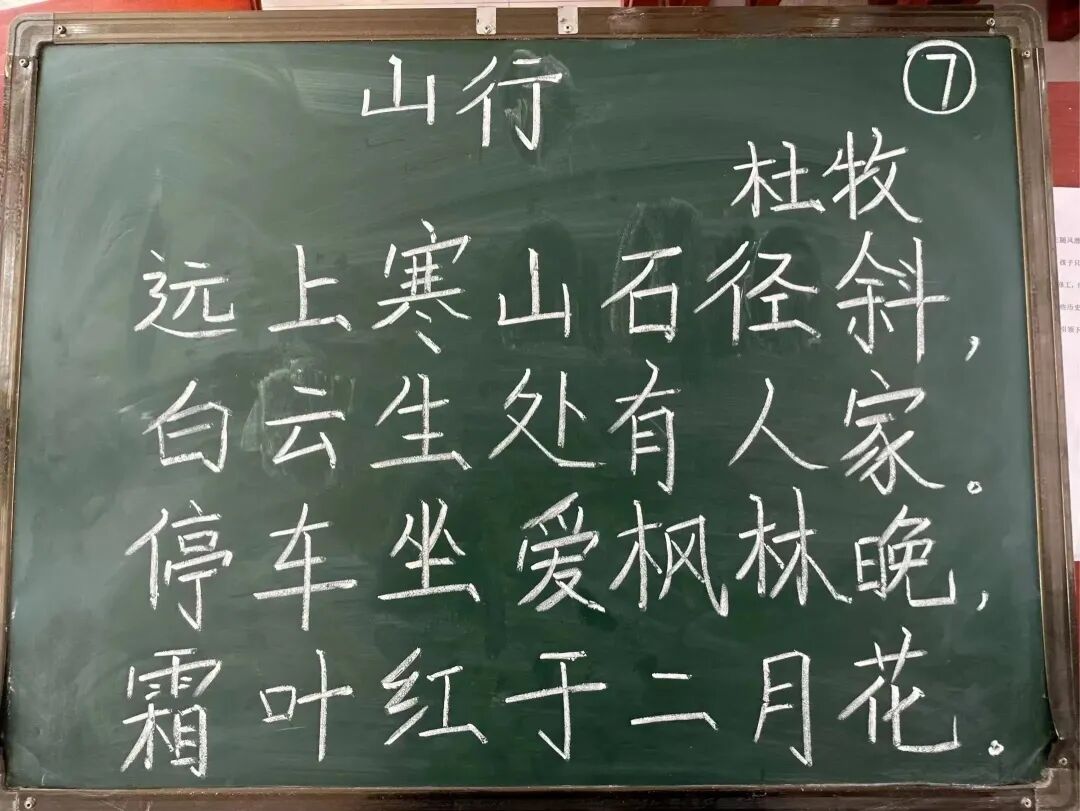 山行
⑦
杜牧
远上寒山石径斜，
白云生处有人家。
停车坐爱枫林晚，
霜叶红于二月花。